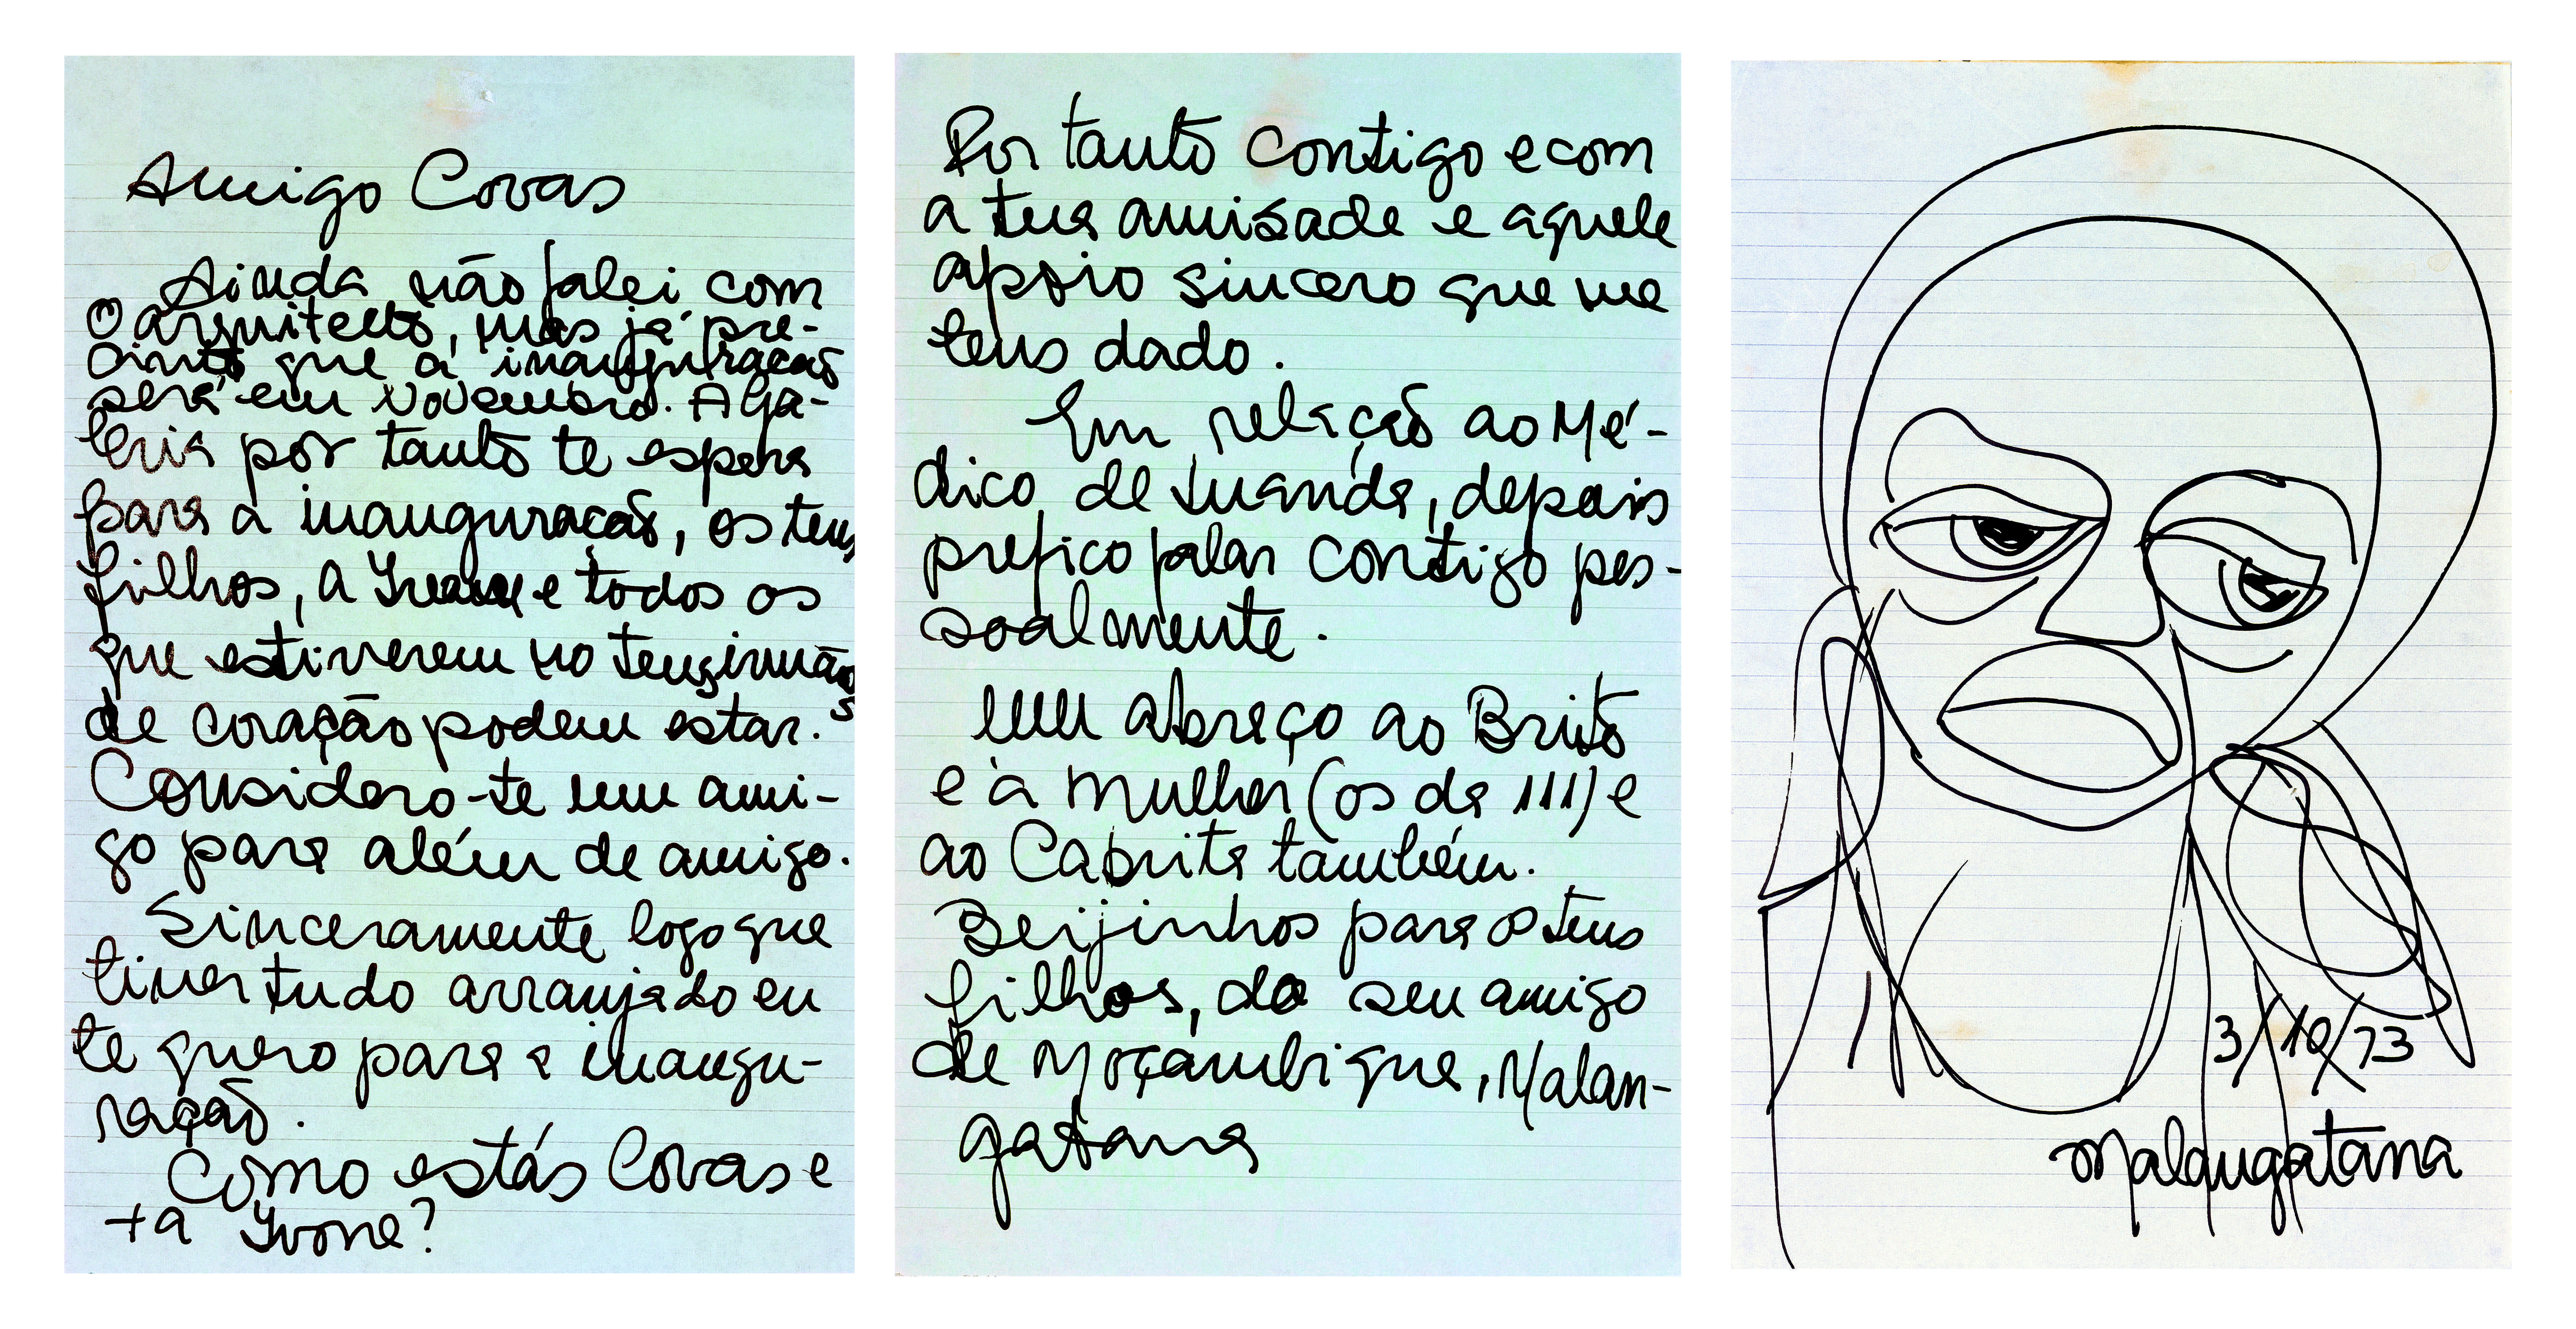 Amigo Covas
Ainda não falei com
o arquitecto, mas já pre-
cinto que a inauguração
será em Novembro. A Ga-
leria por tanto te espera
para a inauguração, os teus
filhos, a Yvone e todos os
que estiverem no teus irmãos
de coração podem estar.
Considero-te um ami-
go para além de amigo.
Sinceramente logo que
tiver tudo arranjado eu
te quero para a inaugu-
ração.
Como estás Covas e
+a Yvone?
Por tanto contigo e com
a tua amisade e aquele
apoio sincero que me
tens dado.
Em relação ao Mé-
dico de Luanda, depois
prefico falar contigo pes-
soalmente.
um abraço ao Brito
e à mulher (os da 111) e
ao Cabrita também.
Beijinhos para os teus
filhos, do seu amigo
de Moçambique, Malan-
gatana
3/10/73
Malangatana